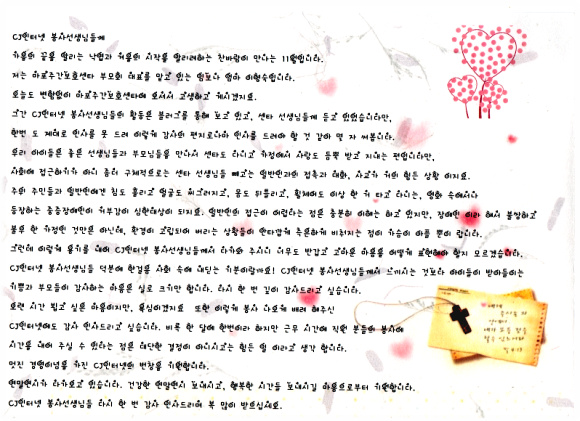 CJ인터넷 봉사선생님들께
가을의 끝을 알리는 낙엽과 겨울의 시작을 알리려하는 찬바람이 만나는 11월입니다.
저는 마포주간보호센타 부모회 대표를 맡고 있는 엄마 이형숙입니다.
오늘도 변함없이 마포주간보호센타에 오셔서 고생하고 계시겠지요.
그간 CJ인터넷 봉사선생님들의 활동은 블러그를 통해 보고 있고, 센타 선생님들께 듣고 있었습니다만,
한번 도 제대로 인사를 못 드려 이렇게 감사의 편지로나마 인사를 드려야 할 것 같아 몇 자 써봅니다.
우리 아이들은 좋은 선생님들과 부모님들을 만나서 센타도 다니고 가정에서 사랑도 듬뿍 받고 지내는 편입니다만,
사회에 접근하기가 아니 좀더 구체적으로는 센타 선생님들 빼고는 일반인과의 접촉과 대화, 사교가 거의 힘든 상황 이지요.
주위 주민들과 일반인에겐 침도 흘리고 얼굴도 찌그러지고, 몸도 뒤틀리고, 휠체어도 이상 한 거 타고 다니는, 영화 속에서나
등장하는 중증장애인이 거부감이 심한대상이 되지요. 일반인의 접근이 어렵다는 점은 충분히 이해는 하고 있지만, 장애인 이라 해서 불쌍하고
불우 한 가정만 것만은 아닌데, 환경이 그렇게되어 버리는 상황들이 안타깝게 측은하게 비춰지는 점이 가슴이 아플 뿐이 랍니다.
그런데 이렇게 용기를 내어 CJ인터넷 봉사선생님들께서 다가와 주시니 너무도 반갑고 고마운 마음을 어떻게 표현해야 할지 모르겠습니다.
CJ인터넷 봉사선생님들 덕분에 한걸음 사회 속에 내딛는 기분이랄까요! CJ인터넷 봉사선생님들께서 느끼시는 것보다 아이들이 받아들이는
기쁨과 부모들이 감사하는 마음은 실로 크기만 합니다. 다시 한 번 깊이 감사드리고 싶습니다.
오랜 시간 뵙고 싶은 마음이지만, 욕심이겠지요 또한 이렇게 봉사 나오게 배려 해주신
CJ인터넷에도 감사 인사드리고 싶습니다. 비록 한 달에 한번이라 하지만 근무 시간에 직원 분들의 봉사에
시간을 내어 주실 수 있다는 점은 대단한 결정이 아니시고는 힘든 일 이라고 생각 합니다.
멋진 경영이념을 가진 CJ인터넷의 번창을 기원합니다.
연말연시가 다가오고 있습니다. 건강한 연말연시 보내시고, 행복한 시간들 보내시길 마음으로부터 기원합니다.
CJ인터넷 봉사선생님들 다시 한 번 감사 인사드리며 복 많이 받으십세요.